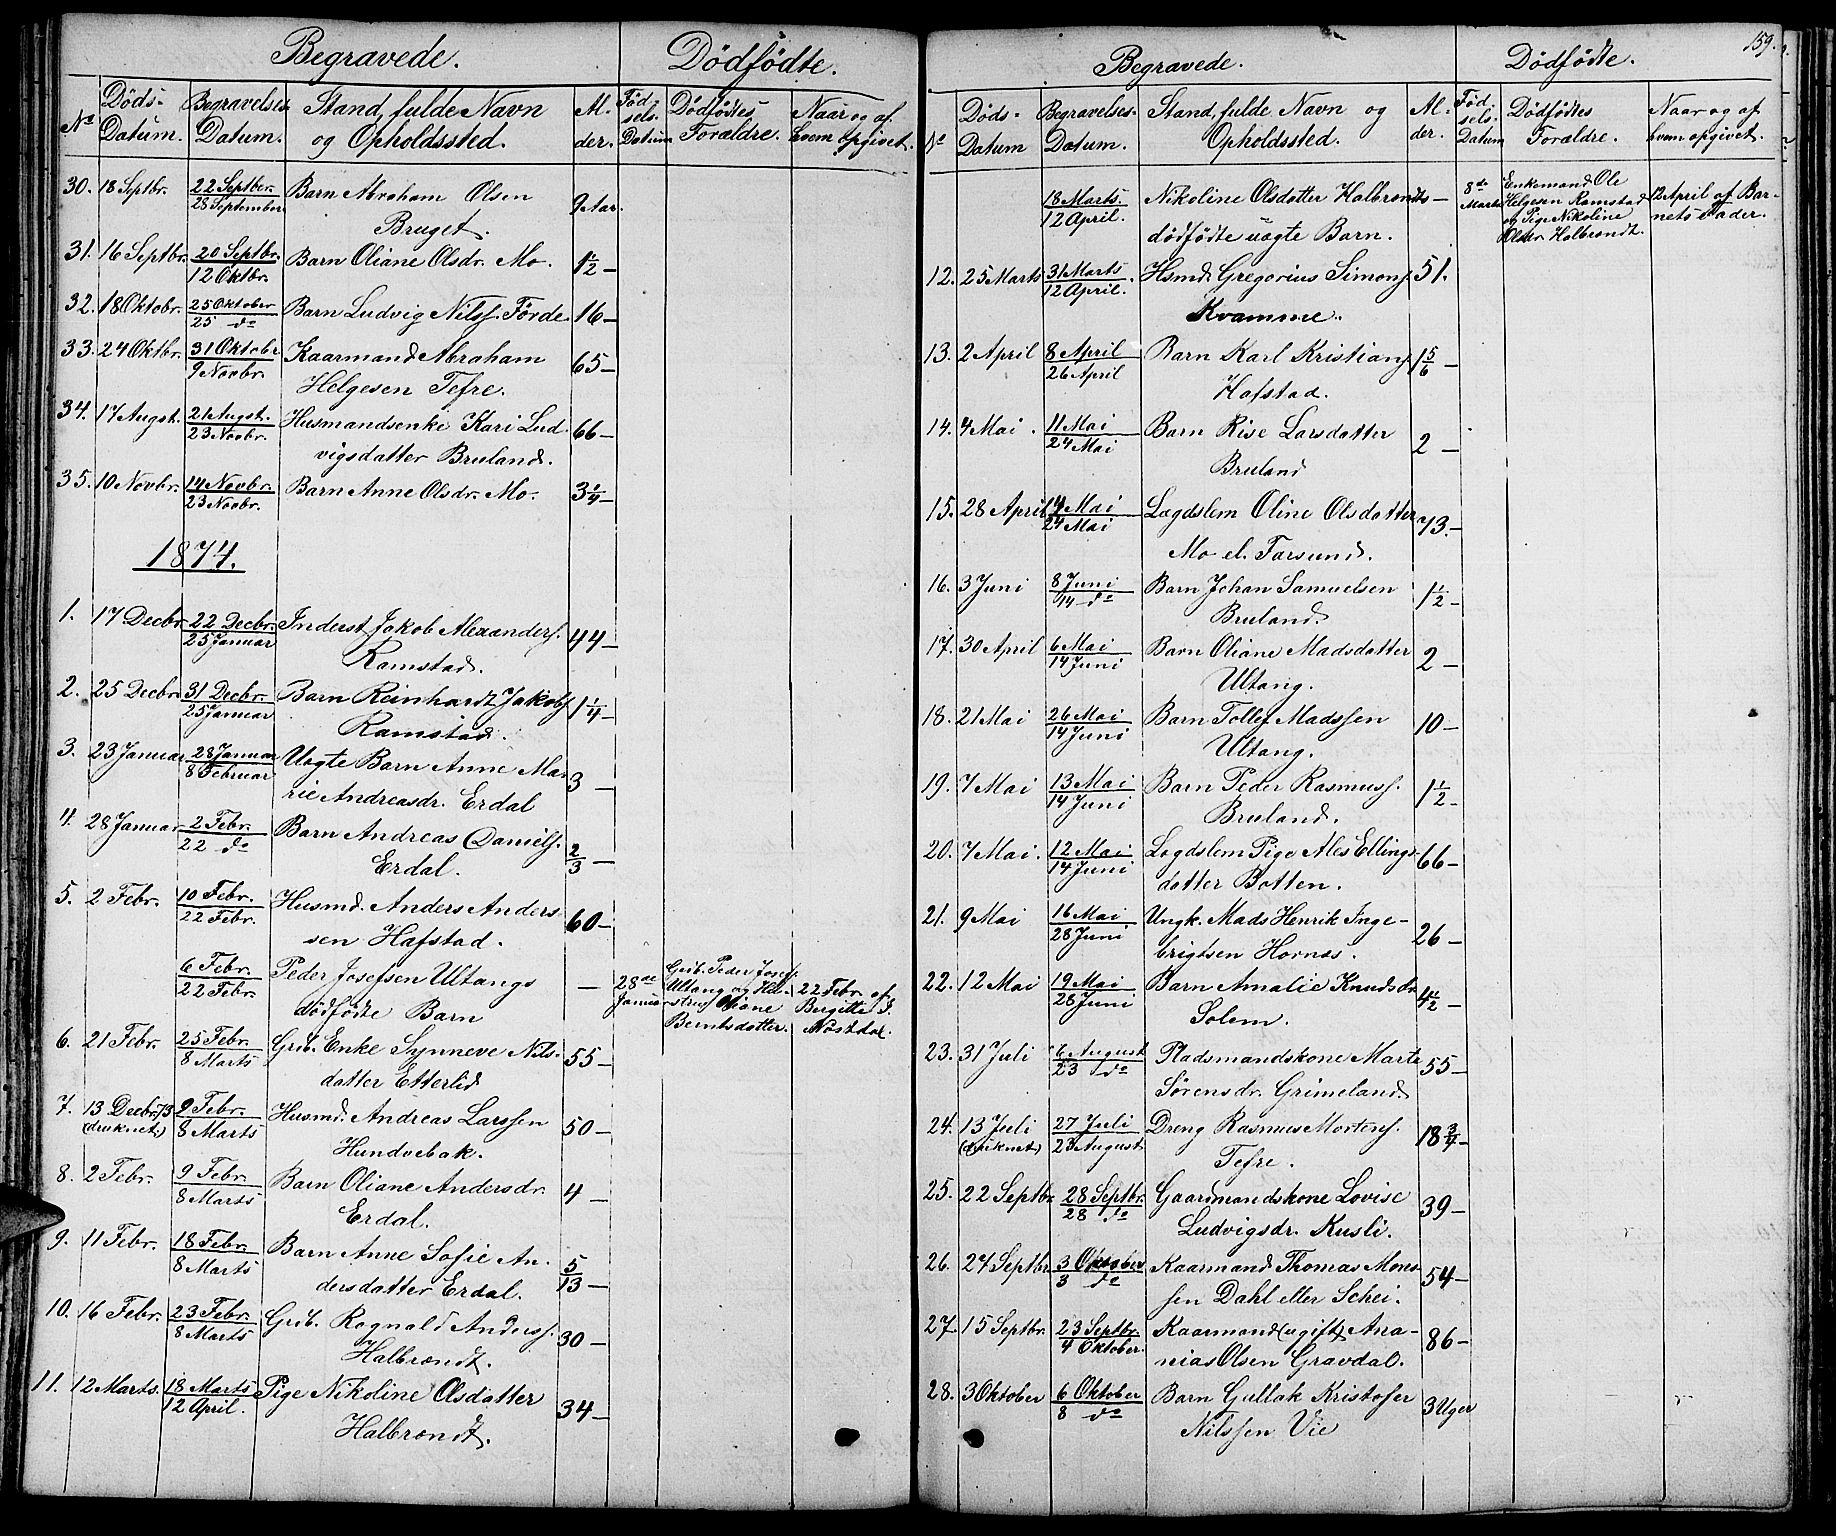 Begravede. Dödfödte.
No Döds-Datum. Begravelses Datum. Stand, fulde Navn og Opholdssted. Al-der. Föd-sels-Datum Dödfödtes Forældre. Naar og af hvem opgivet.
30. 18 Septbr. 22 Septber. Barn Abraham Olsen 9 Aar.
28 September Bruget.
31. 16 Septbr. 20 Septbr. Barn Oliane Olsdr. Mo. 1½ –
12 Oktbr.
32. 18 Oktobr. 25 Oktober Barn Ludvig Nilss. Förde 16 –
25 do
33. 24 Oktbr. 31 Oktobr Kaarmand Abraham 65 –
9 Novbr. Helgesen Tefre.
34. 17 Augst. 21 Augst. Husmandsenke Kari Lud 66 –
23 Novbr. vigsdatter Bruland.
35. 10 Novbr. 14 Novbr. Barn Anne Olsdr. Mo. 3¼ –
23 Novbr.
1874.
1. 17 Decbr 22 Decbr. Inderst Jakob Alexanders. 44 –
25 Januar Ramstad.
2. 25 Decbr 31 Decbr. Barn Reinhardt Jakobs. 1¼ –
25 Januar Ramstad.
3. 23 Januar 28 Januar Uægte Barn Anne Ma- 3 –
8 Februar rie Andreasdr. Erdal
4. 28 Januar 2 Febr. Barn Andreas Daniels. 2/3 –
22 do Erdal.
5. 2 Febr. 10 Febr. Husmd. Anders Anders- 60 –
22 Febr. sen Hafstad.
6 Febr. Peder Josefsen Ultangs – 28de Januar Grb. Peder Josefs. Ultang og Hustru Oliane Berntsdatter. 22 Febr. af Birgitte J. Nöstdal
22 Febr. dödfödte Barn
6. 21 Febr. 25 Febr. Grb. Enke Synneve Nils- 55 –
8 Marts datter Etterlid
7. 13 Decbr. 73 2 Febr. Husmd. Andreas Larssen 50 –
(druknet.) 8 Marts Hundvebak.
8. 2 Febr. 9 Febr. Barn Oliane Andersdr. 4 –
8 Marts Erdal.
9. 11 Febr. 18 Febr. Barn Anne Sofie An- 5/13 –
8 Marts dersdatter Erdal.
10. 16 Febr. 23 Febr. Grb. Ragnald Anderss. 30 –
8 Marts Halbrendt.
11. 12 Marts. 18 Marts Pige Nikoline Olsdatter 34 –
12 April. Halbrendt.
159.
Begravede. Dödfödte.
No Döds-Datum Begravelses-Datum. Stand, fulde Navn og Opholdssted. Al-der. Föd-sels-Datum Dödfödtes Forældre. Naar og af hvem opgivet.
18 Marts. Nikoline Olsdatter Halbrendts – 8de Marts Enkemand Ole Helgesen Ramstad og Pige Nikoline Olsdr. Halbrendt. 12 April af Bar-nets Fader.
12 April. dödfödte uægte Barn.
12. 25 Marts 31 Marts Hsmd. Gregorius Simons. 51.
12 April. Kvamme.
13. 2 April 8 April Barn Karl Kristians. 1 5/6 –
26 April Hafstad.
14. 4 Mai. 11 Mai Barn Rise Larsdatter 2 –
24 Mai Bruland
15. 28 April 4 Mai Lægdslem Oline Olsdatter 73. –
24 Mai Mo el. Farsund.
16. 3 Juni 8 Juni Barn Johan Samuelsen 1½ –
14 do Bruland.
17. 30 April 6 Mai Barn Oliane Madsdatter 2 –
14 Juni Ultang.
18. 21 Mai 26 Mai Barn Tollef Madssen 10 –
14 Juni Ultang.
19. 7 Mai 13 Mai Barn Peder Rasmuss. 1½ –
14 Juni Bruland.
20. 7 Mai. 12 Mai Lægdslem Pige Ales Ellings- 66 –
14 Juni datter Botten.
21. 9 Mai 16 Mai Ungk. Mads Henrik Inge- 26 –
28 Juni brigtsen Hornæs.
22. 12 Mai 19 Mai Barn Amalie Knudsdr. 4½ –
28 Juni Solem.
23. 31 Juli 6 August Pladsmandskone Marte 55 –
23 do Sörensdr. Grimeland
24. 13 Juli 27 Juli Dreng Rasmus Mortens. 18¾ –
(druknet) 23 August Tefre.
25. 22 Septbr. 28 Septbr. Gaardmandskone Lovise 39 –
28 do Ludvigsdr. Kusli.
26. 27 Septbr 3 Oktober Kaarmand Thomas Mons- 54 –
3 do sen Dahl eller Schei.
27. 15 Septbr. 23 Septbr. Kaarmand (ugift) Ana- 86 –
4 Oktober. nias Olsen Gravdal.
28. 3 Oktober 6 Oktober Barn Gullak Kristofer 3 Uger
8 do Nilssen Vie